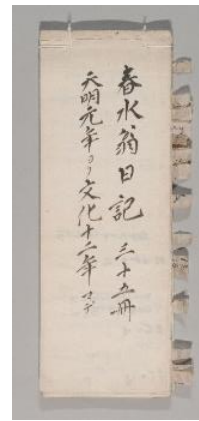 春水翁日記 三十五冊
天明元年ヨリ文化十二年マデ